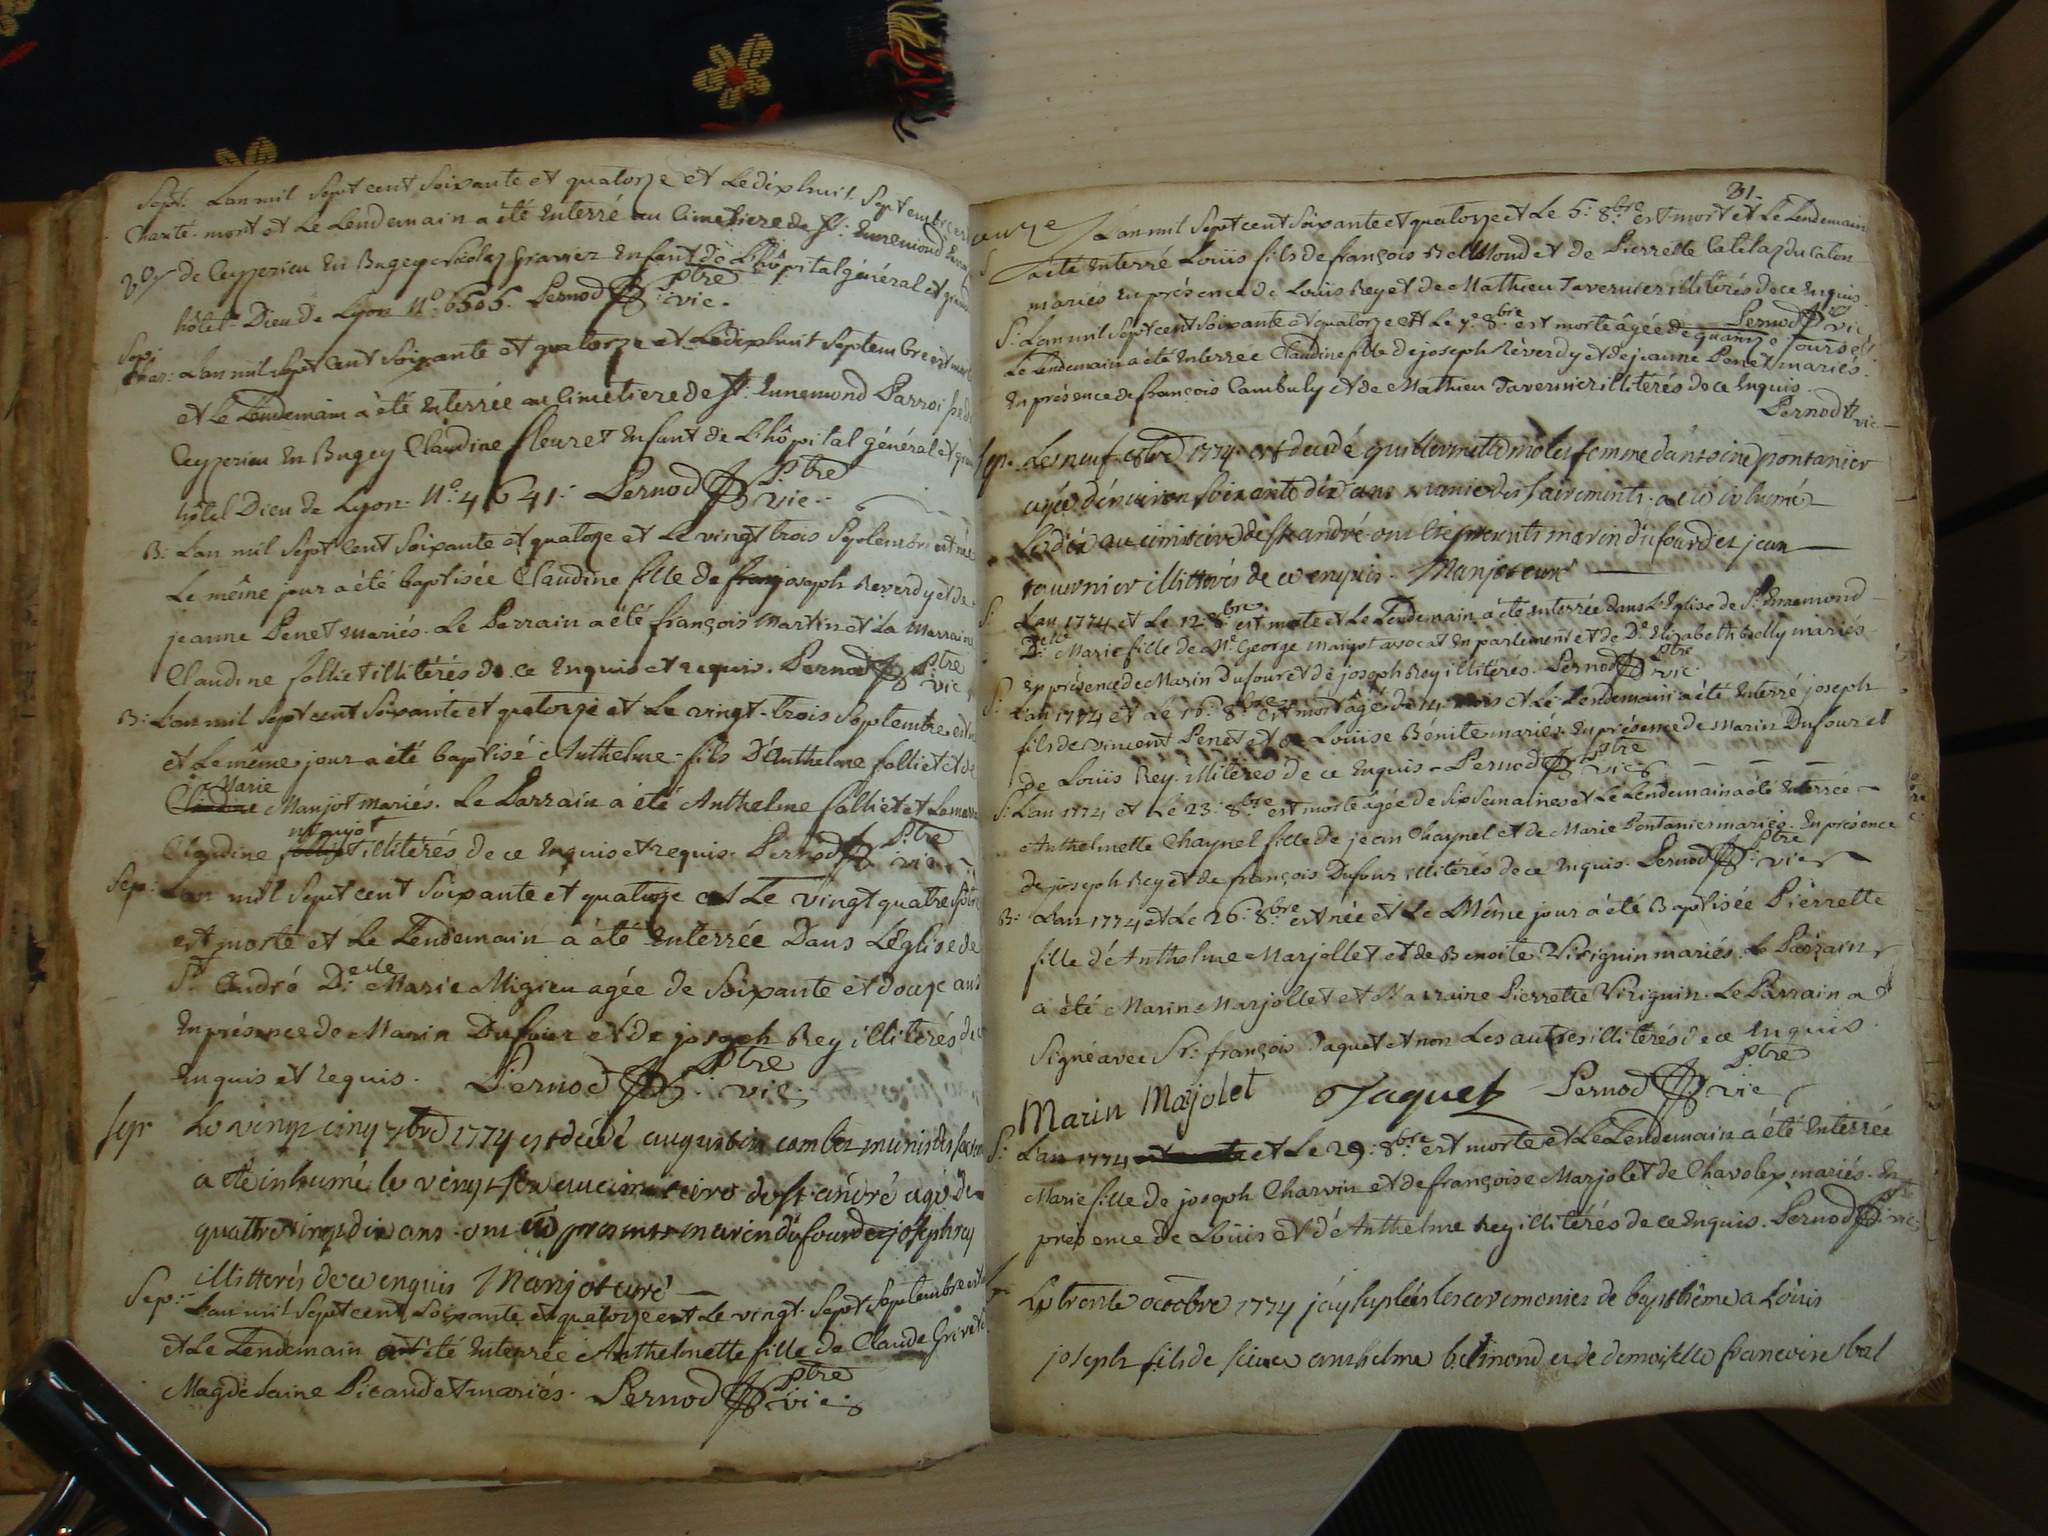 Sept: Lan mil Sept cent Soixante et quatorze et Le dixhuit Septembre est
Charte. mort et Le Lendemain a été Enterré au Cimetiere de St: Ennemond
de Ceyzerieu En Bugey Nicolas Gravier Enfant de L'hôpital général et grand
hôtel-Dieu de Lyon N°. 6505. Pernod Ptre vic.
Sep: Lan mil Sept Cent Soixante et quatorze et Le dixhuit Septembre est morte
et Le Lendemain a été Enterrée au Cimetiere de St: Ennemond Parroisse de
Ceyzerieu En Bugey Claudine fleuret Enfant de L'hôpital général et grand
hôtel Dieu de Lyon. N°: 4641: Pernod Ptre vic.
B: Lan mil Sept Cent Soixante et quatorze et Le vingt trois Septembre est née
Le même jour a été baptisée Claudine fille de joseph Reverdy et de
jeanne Penet mariés. Le Parrain a été françois Martin et La Marraine
Claudine folliet illitérés de ce Enquis et requis. Pernod Ptre vic
B: Lan mil Sept cent Soixante et quatorze et Le vingt-trois Septembre est né
et Le même jour a été baptisé Anthelme fils D'Anthelme folliet et de
Marie
Claudine Manjot mariés. Le Parrain a été Anthelme folliet et La marraine
manjot
Claudine folliet illitérés de ce Enquis et requis. Pernod Ptre vic.
Sep: Lan mil Sept cent Soixante et quatorze et Le vingt quatre Sptre
est morte et Le Lendemain a été Enterrée Dans L'Eglise de
St André D.elle Marie Migieu agée de Soixante et douze ans
En présence de Marin Dufour et de joseph Rey illitérés de ce
Enquis et requis. Pernod Ptre vic:
sep Le vingt cinq 7bre 1774 est décédé augustin combet munis des sacrements
a été inhumé le vingt six au cimetiere de st. andré agé de
quattre vingt dix ans. ont été presents marin dufour et joseph rey
illitterés de ce enquis Manjot curé
Sep: Lan mil Sept cent Soixante et quatorze et Le vingt-Sept Septembre est
et Le Lendemain a été Enterrée Anthelmette fille de Claude Grivet et
Magdelaine Picaudet mariés. Pernod Ptre vic.
31.
Lan mil Sept cent Soixante et quatorze et Le 5: 8bre est mort et Le Lendemain
a été Enterré Louis fils de françois Bellmond et de Pierrette
mariés En présence de Louis Rey et de Mathieu Tavernier illitérés de ce Enquis.
Pernod vic
S: Lan mil Sept cent Soixante et quatorze et Le 7e 8bre est morte âgée de quainze jours et
Le Lendemain a été Enterrée Claudine fille de joseph Réverdy et de jeanne Penet mariés.
En présence de françois Cambuly et de Mathieu Tavernier illitérés de ce Enquis.
Pernod vic
sep. Le neuf 8bre 1774 est décédé guillermette molez femme d'antoine pontanier
agée d'environ soixante dix ans munie des sairements. a été inhumée
Le dix au cimitiere de St andré ont été presents marin dufour et jean
tavernier illitterés de ce enquis. Manjot curé
S: Lan 1774 et Le 12. 8bre est morte et Le Lendemain a été Enterrée dans L'Eglise de St. Ennemond
D.elle Marie fille de Mr George manjot avocat En parlement et de De Elizabeth mariés
En présence de Marin Dufour et de joseph Rey illitérés. Pernod Ptre vic
S: Lan 1774 et Le 16: 8bre est mort âgé de 14 mois et Le Lendemain a été Enterré joseph
fils de vincent Penet et de Louise Bénite mariés. En présence de Marin Dufour et
de Louis Rey. illitérés de ce Enquis - Pernod Ptre vic
S: Lan 1774 et Le 23: 8bre est morte âgée de Six Semaines et Le Lendemain a été Enterrée
Anthelmette Chaynel fille de jean Chaynel et de Marie Pontanier mariés. En présence
de joseph Rey et de françois Dufour illitérés de ce Enquis. Pernod Ptre vic
B: Lan 1774 et Le 26: 8bre est née et Le Même jour a été Baptisée Pierrette
fille d'Anthelme Marjollet et de Benoite Viriguin mariés. Le Parrain
a été Marin Marjollet et Marraine Pierrette Viriguin. Le Parrain a
Signé avec Sr: françois Jaquet et non Les autres illitérés de ce Enquis.
Marin Majolet Jaquet Pernod Ptre vic
S: Lan 1774 et Le 29: 8bre est morte et Le Lendemain a été Enterrée
Marie fille de joseph Charvin et de françoise Marjolet de Chavoley mariés. En
présence de Louis et d'Anthelme Rey illitérés de ce Enquis. Pernod vic:
Le trente octobre 1774 j'ay suplées les ceremonies de baptême a Louis
joseph fils de sieur anthelme belmond et de demoiselle francoise bal